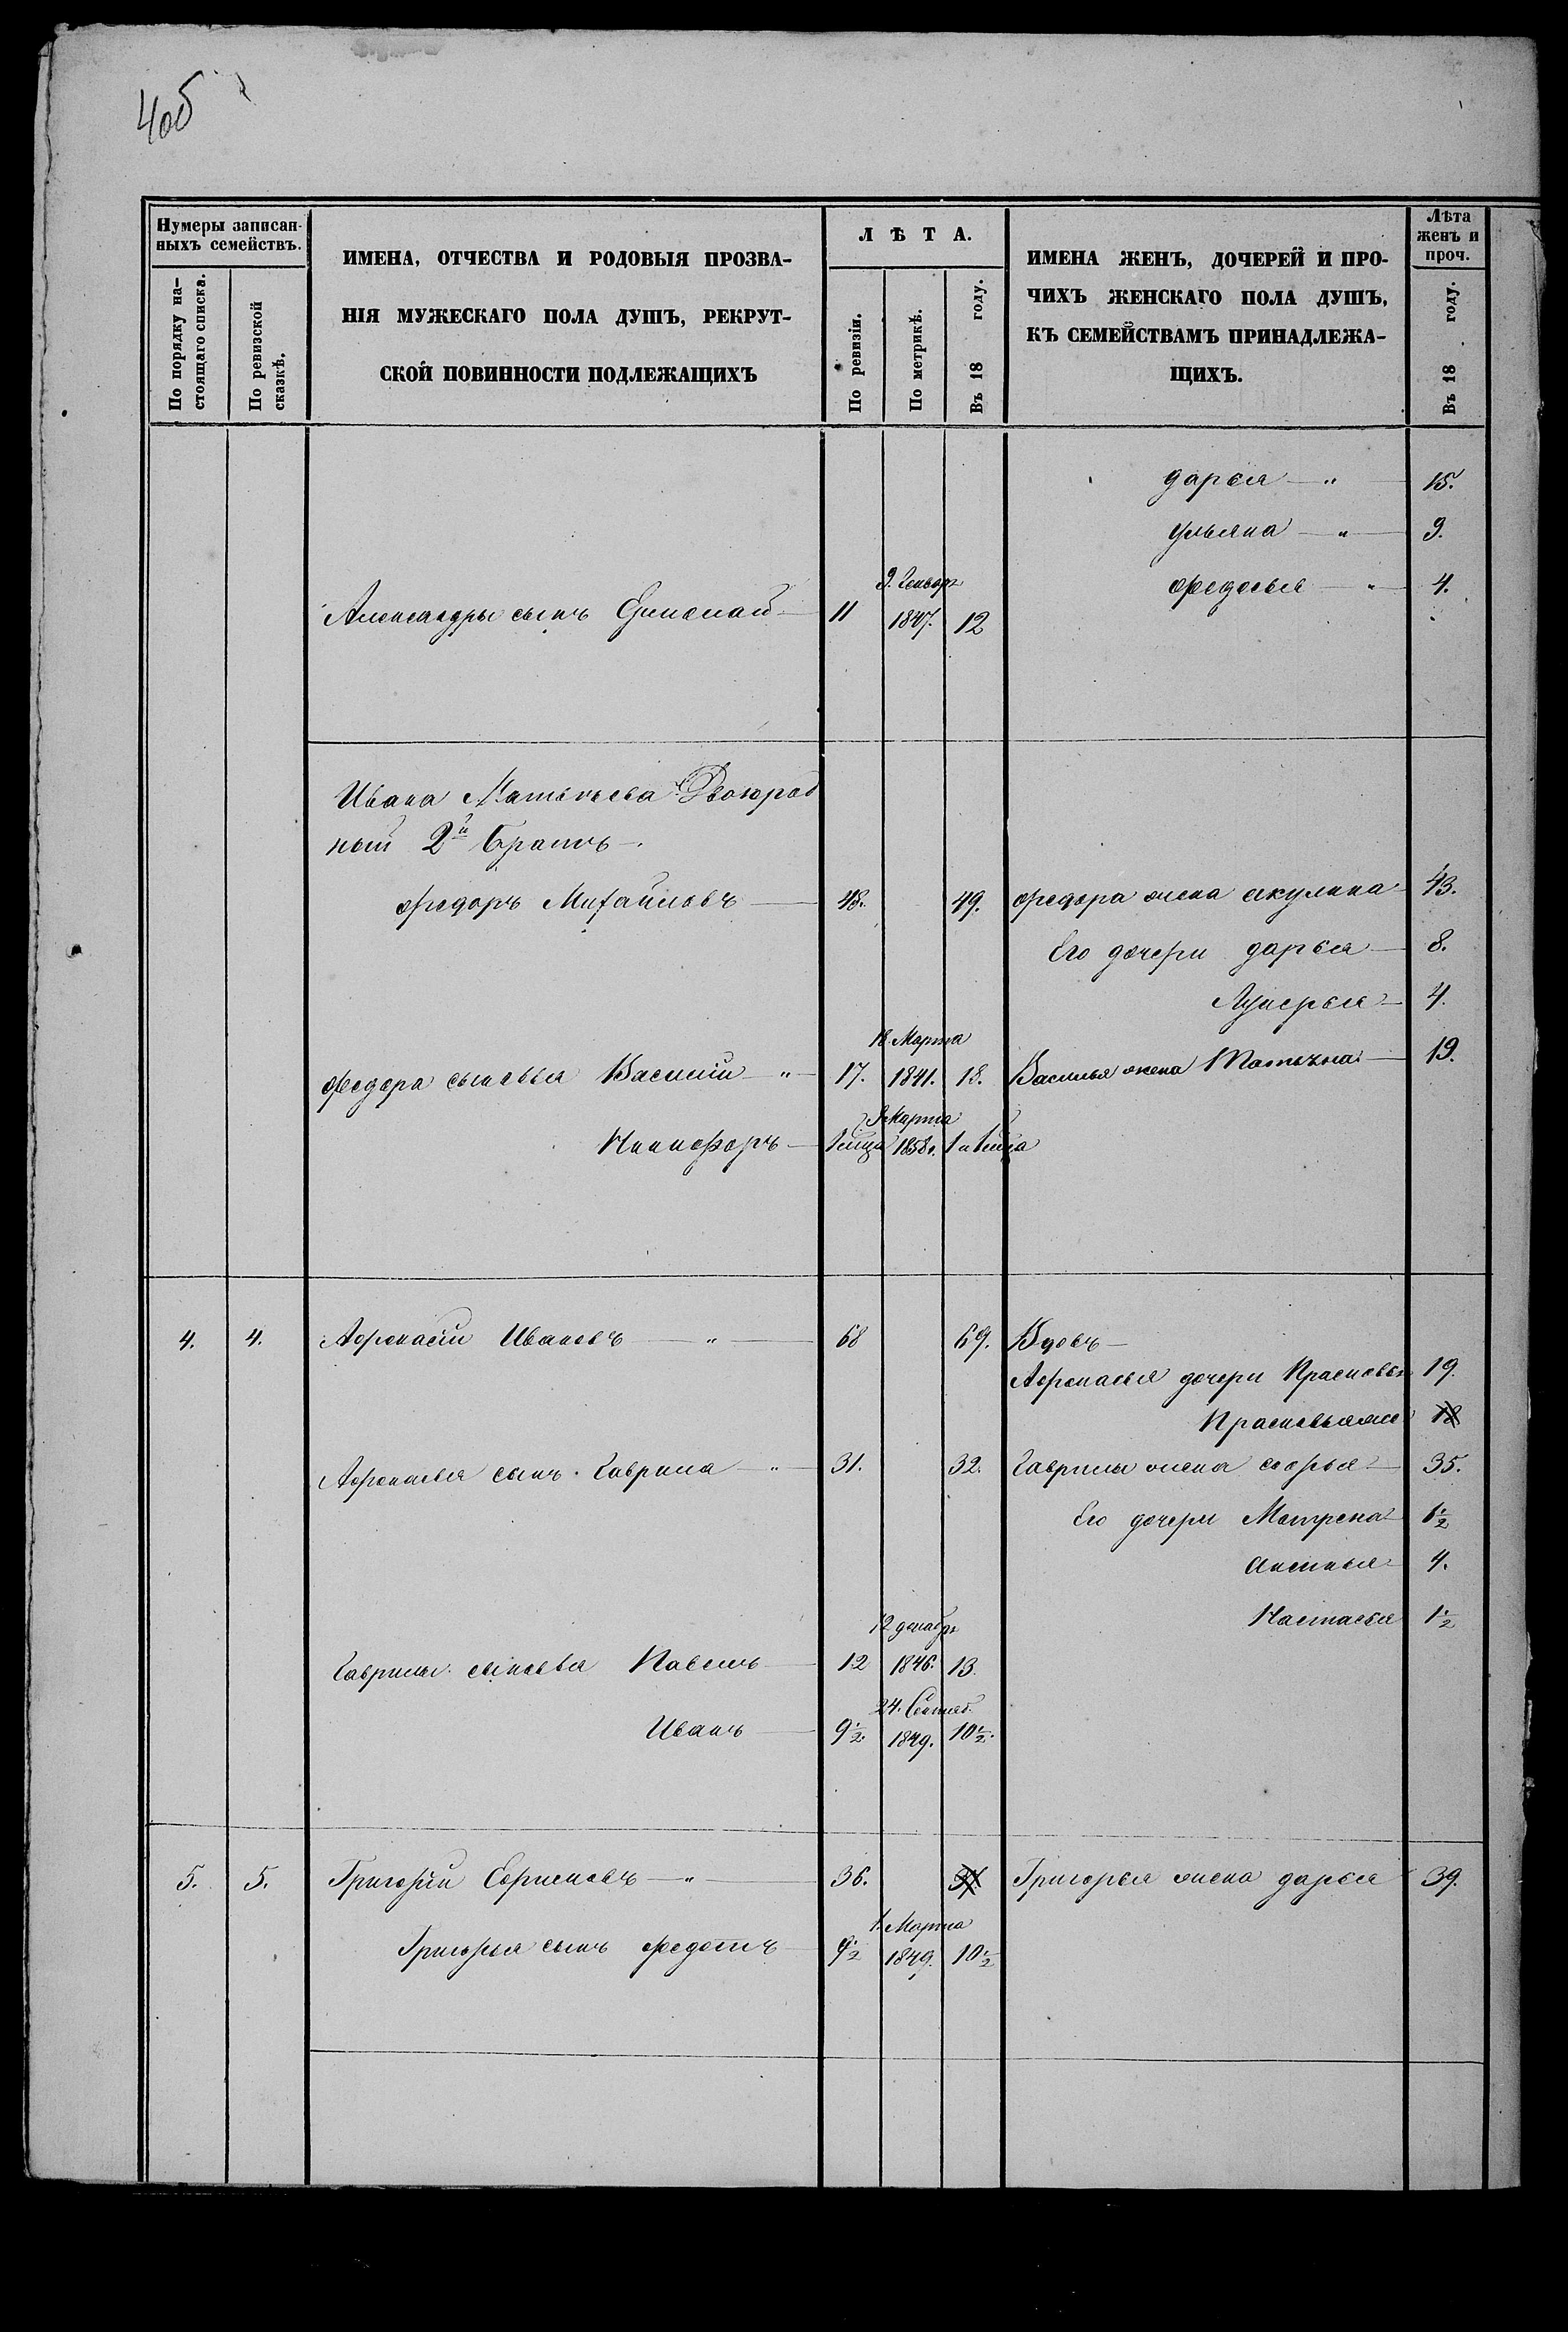 4об
Нумеры записан-
ныхъ семействъ.
По порядку на-
стоящаго списка.
По ревизской
сказкѣ.
ИМЕНА, ОТЧЕСТВА И РОДОВЫЯ ПРОЗВА-
НІЯ МУЖЕСКАГО ПОЛА ДУШЪ, РЕКРУТ-
СКОЙ ПОВИННОСТИ ПОДЛЕЖАЩИХЪ
ЛѢТА.
По ревизіи.
По метрикѣ.
Въ 18 году.
ИМЕНА ЖЕНЪ, ДОЧЕРЕЙ И ПРО-
ЧИХЪ ЖЕНСКАГО ПОЛА ДУШЪ,
КЪ СЕМЕЙСТВАМЪ ПРИНАДЛЕЖА-
ЩИХЪ.
Лѣта
женъ и
проч.
Въ 18 году.
дарья — " — 15.
ульяна — " — 9.
федосья — " — 4.
9. Генвар
Александры сынъ — 11 1847. 12
Ивана Матвѣева Двоюрод
ный 2й Братъ —
федоръ Михайловъ — 48. 49. федора жена акулина — 43.
Его дочери дарья — 8.
Лукерья — 4.
18. Марта
федора сыновья Василій — " — 17. 1841. 18. Василья жена Татьяна — 19.
9 Марта
Никифоръ — 1мца 1858. 1 и 1мца
4. 4. Афонасій Ивановъ — " — 68 69. Вдовъ —
Афонасья дочери Прасковья 19.
Прасковья 18
Афонасья сынъ Гаврила — " — 31. 32. Гаврилы жена софья — 35.
Его дочери Матрена 6½
Аксинья 4.
Настасья 1½
12 декабр
Гаврилы сыновья Павелъ — 12 1846. 13.
24. Сентяб.
Иванъ — 9½. 1849. 10½.
5. 5. Григорій Ефимовъ — " — 36. 37. Григорья жена дарья 39.
1. Марта
Григорья сынъ федотъ — 9½ 1849. 10½